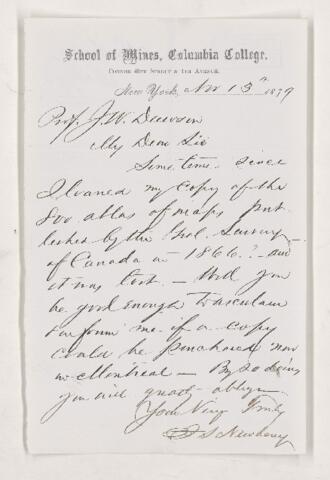 School of Mines, Columbia College,
Corner 49th Street & 4th Avenue.
New York, Nov 13th 1879
Prof. J. W. Dawson
My Dear Sir
Sometime since
I loaned my copy of the
8vo atlas of maps pub-
lished by the Geol. Survey
of Canada in 1866? and
it was lost. — Will you
be good enough to ascertain
& inform me if a copy
could be purchased now
in Montreal — By so doing
you will greatly oblige
Yours Very Truly
J S Newberry